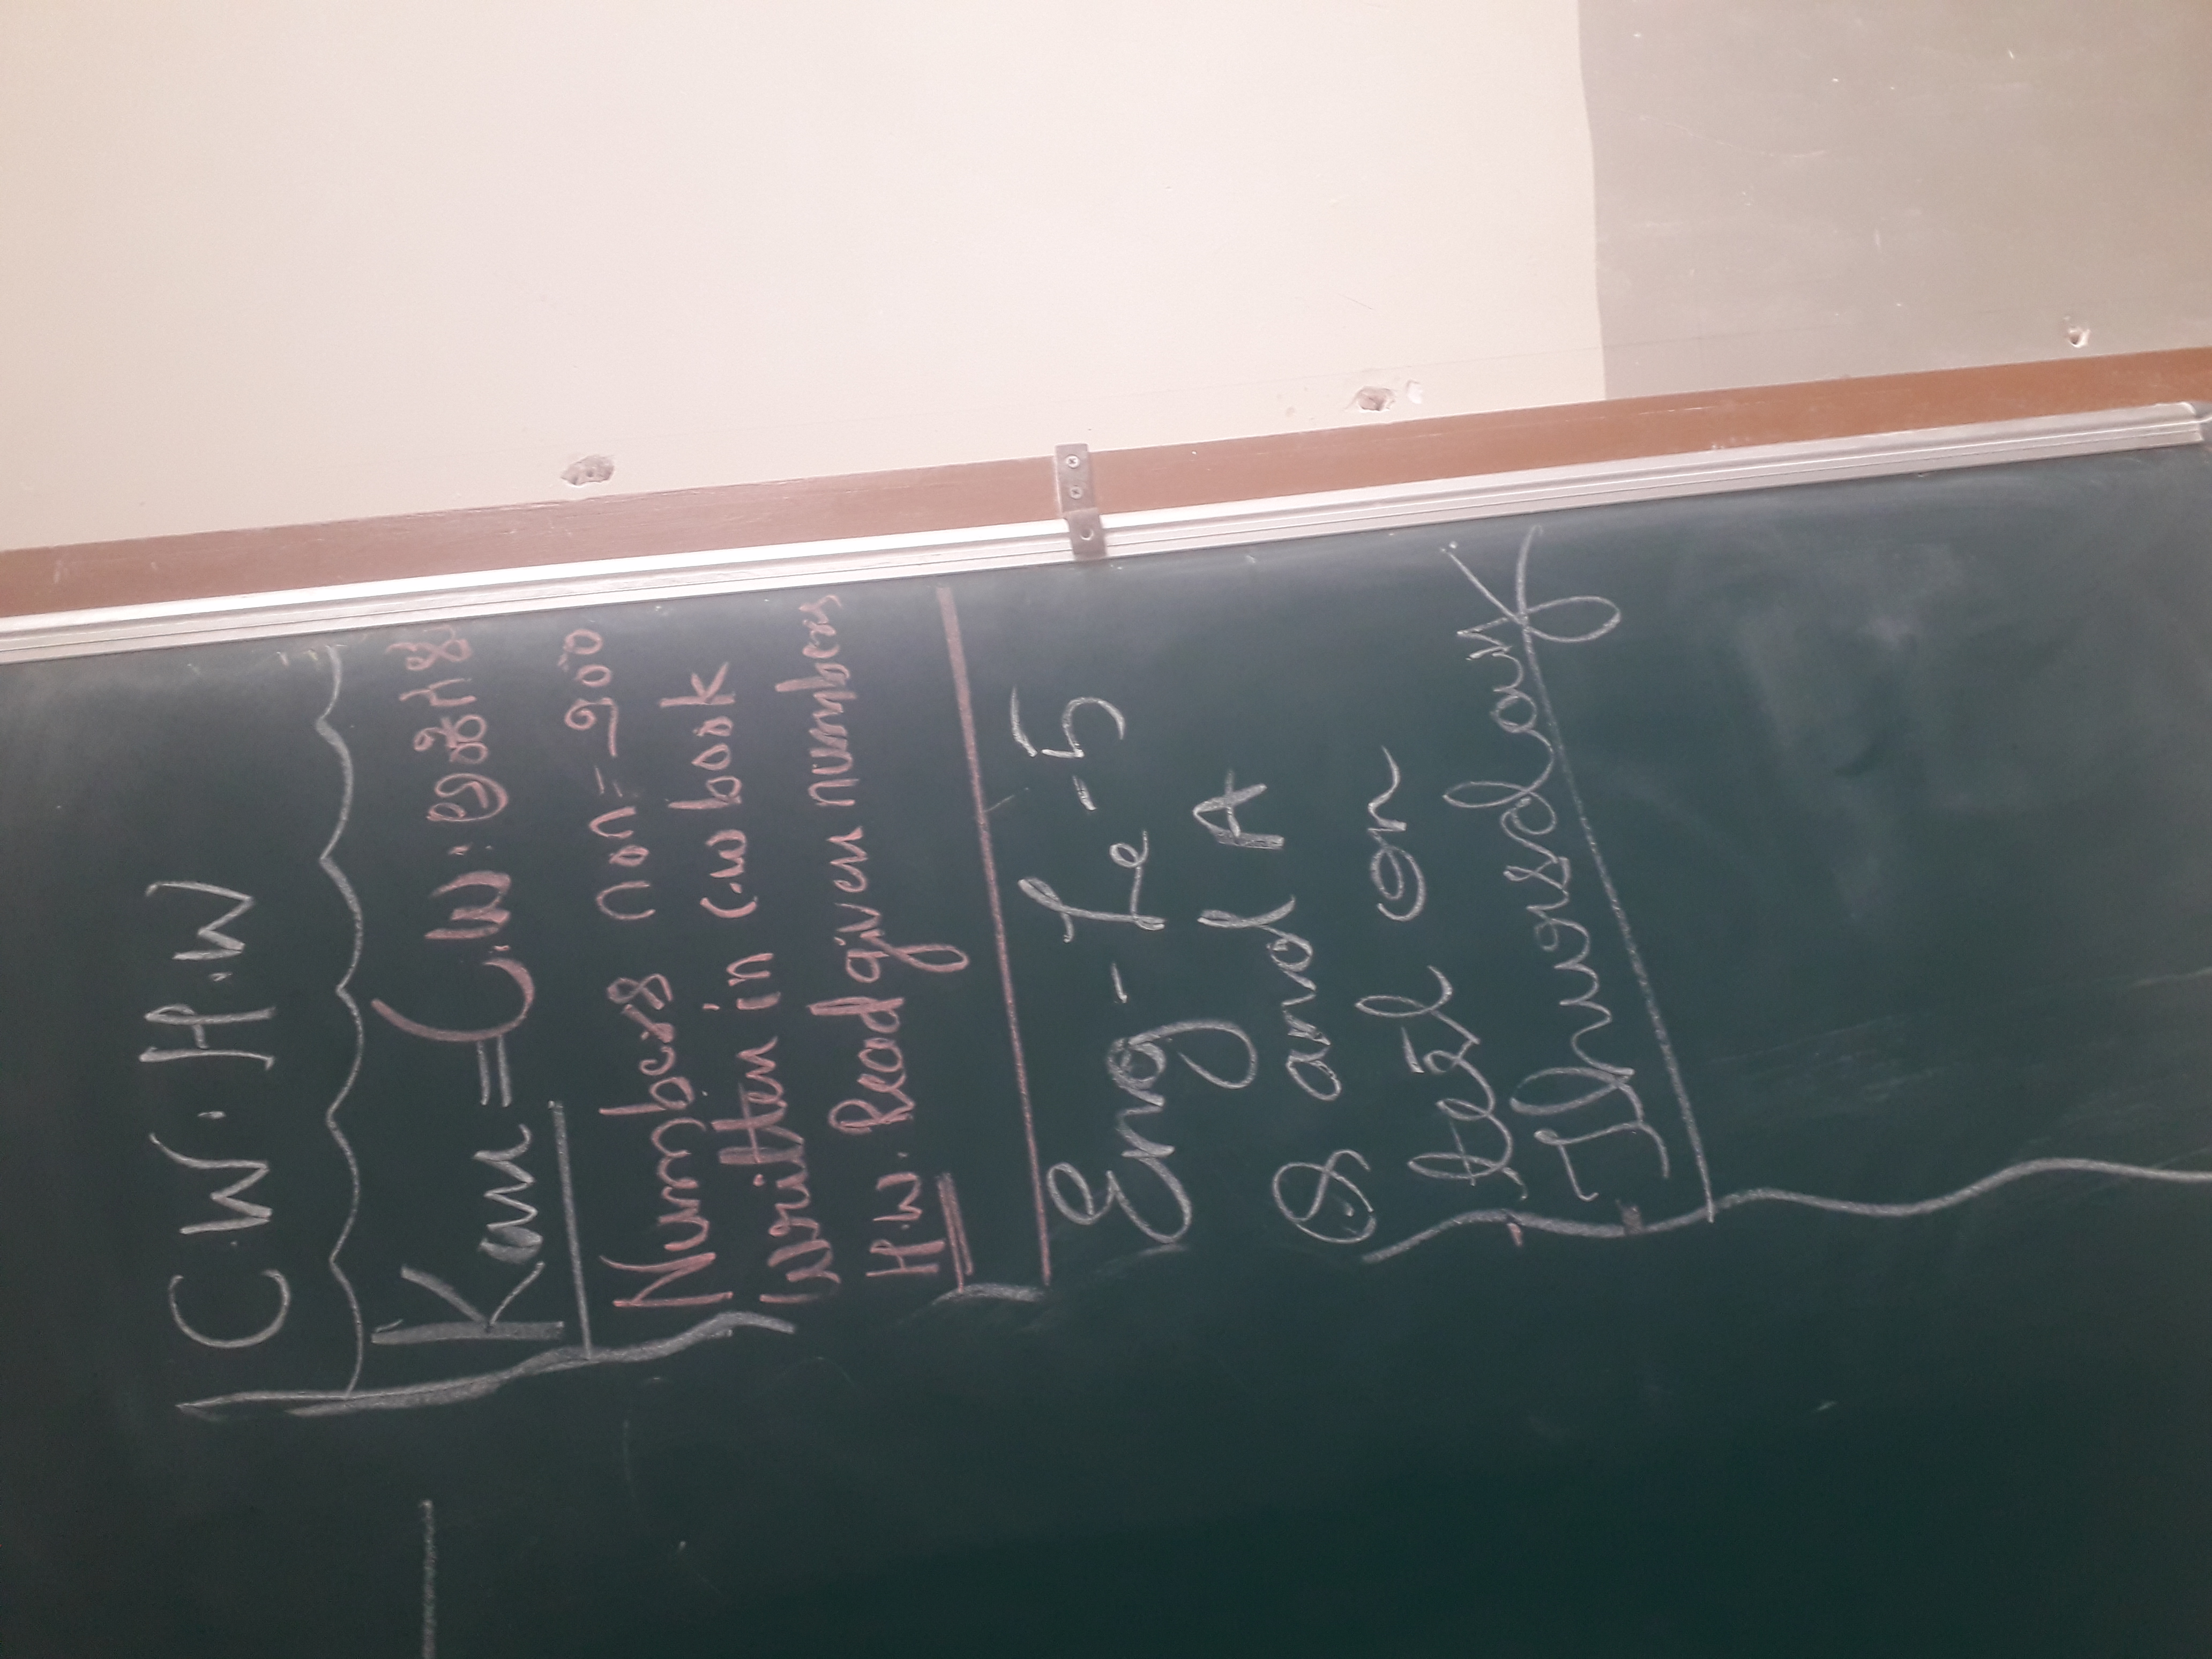 C.W. H.W
Kan = C.W.
Numbers ೧೦೧ = ೨೦೦
Written in C.W book
H.W. Read given numbers
Eng - Le - 5
Q and A
test on
Thursday